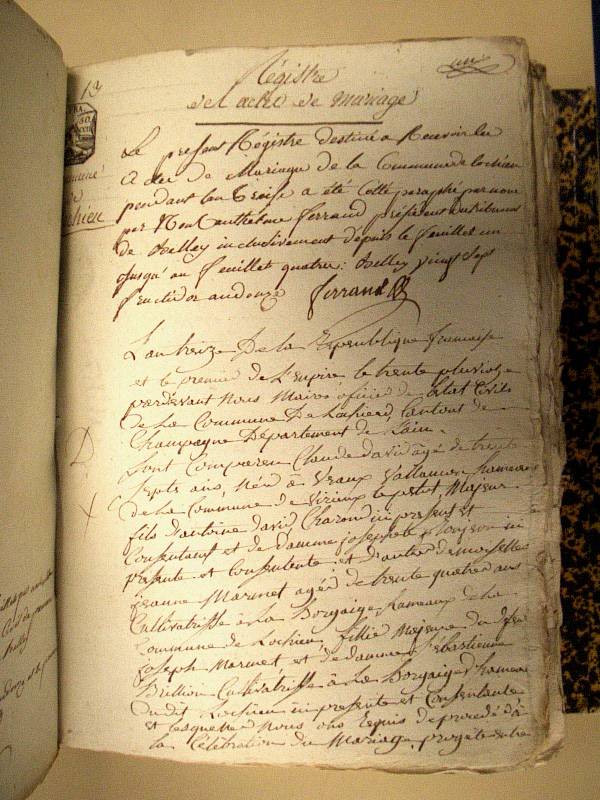 Régistre
de L actes de mariage
Le présent Régistre destiné a Recevoir les
Actes de Mariage de la Commune de lochieu
pendant l'an treize a été Cotté paraphé par nous
par Nous Anthelme ferrand président du tribunal
de Belley inclusivement dépuis le feuillet un
jusqu'au feuillet quatre: Belley vingt sept
fructidor an douze ferrand
L'an treize De La Republique francaise
et le premier de L'Empire le trente pluviose
pardevant Nous Maire officier de letat Civile
de La Commune De Lochieu, Canton de
Champagne Département de Lain.
Sont Comparen Claude david agé de trente
septs ans, Né à Veaux hameau
de La Commune de Virieux le petit, Majeur
fils d'antoine david Charond ici present et
Consentant et de damme josephete
présente et Consentente. et d'autre demoiselle
jeanne Marinet agée de trente quatre ans
Cultivatrisse à La Borgaige hameaux de La
Commune de Lochieu, fillie Majeure du
joseph Marinet et de damme Sébastienne
Brillion Cultivatrisse à La Borgaige hameau
dudit Lochieu ici presente et Consentante
et Lesquelle Nous ons Requis de procedé à
la Célébration du Mariage progeté entre